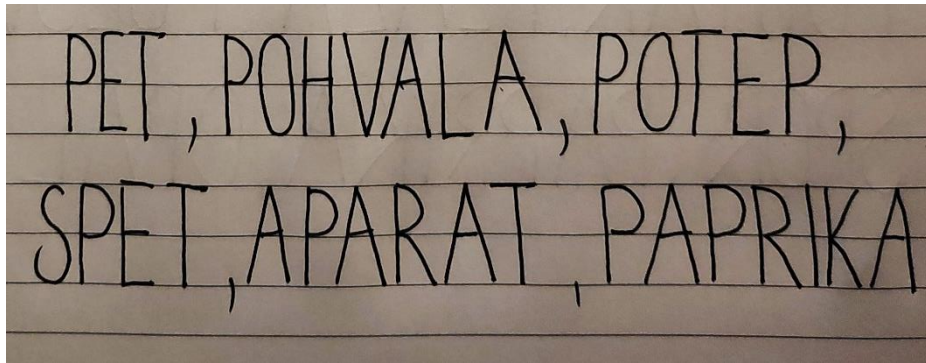 PET, POHVALA, POTEP,
SPET, APARAT, PAPRIKA